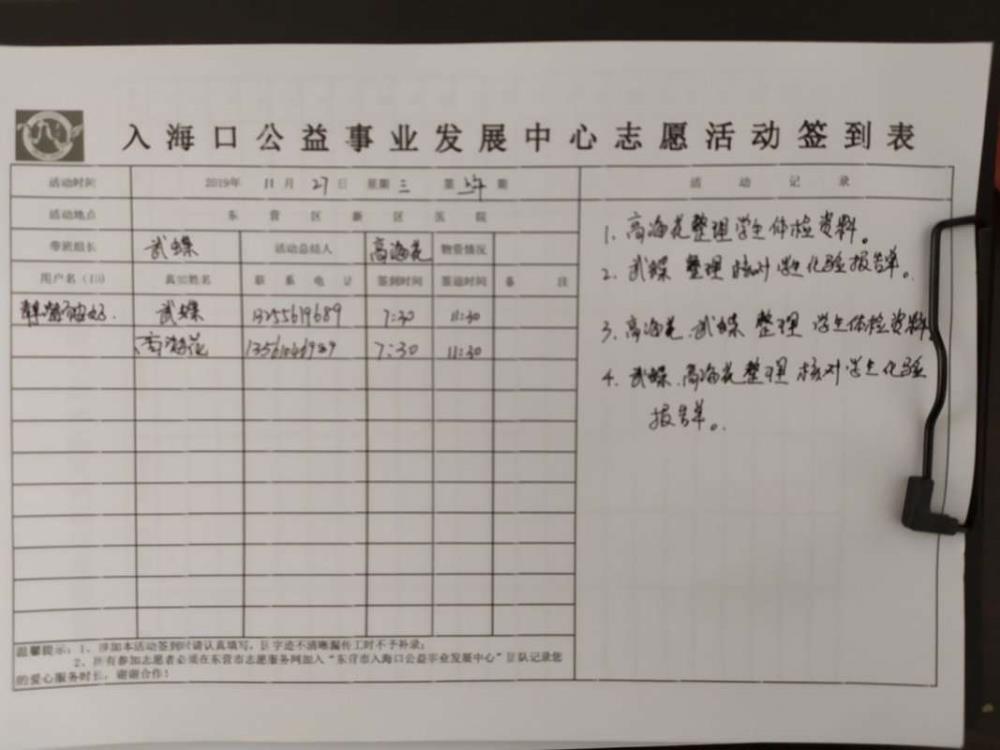 入海口公益事业发展中心志愿活动签到表
活动时间 2019年 11月 27日 星期三 第 期
活动地点 东营区新区医院
带班组长 武蝶 活动总结人 高海花 物资情况
用户名(ID) 真实姓名 联系电话 签到时间 签退时间 备注
武蝶 13255619689 7:30 11:30
高海花 7:30 11:30
活动记录
1. 高海花整理学生体检资料。
2. 武蝶 整理 核对 学生化验报告单。
3. 高海花.武蝶 整理 学生体检资料
4. 武蝶.高海花整理 核对学生化验
报告单。
温馨提示：1、参加本活动签到时请认真填写，因字迹不清晰漏传工时不予补录；
2、所有参加志愿者必须在东营市志愿服务网加入“东营市入海口公益事业发展中心”团队记录您
的爱心服务时长，谢谢合作！